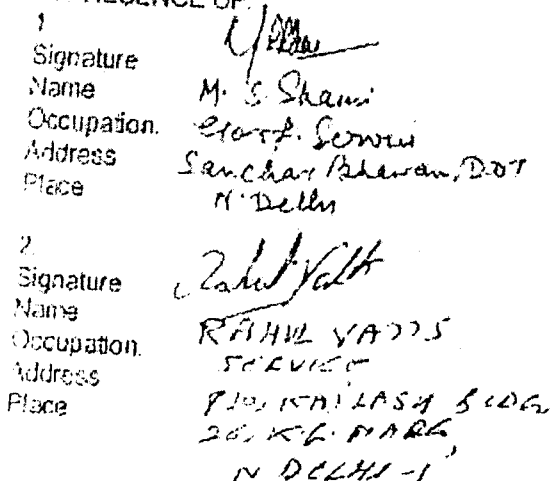 PRESENCE OF:
1
Signature
Name M. S. Shami
Occupation. Govt. Service
Address Sanchar Bhawan, DOT
Place N. Delhi
2.
Signature Rahul Vatts
Name RAHUL VATTS
Occupation. SERVICE
Address 810, KAILASH BLDG,
Place 26, K.G. MARG,
N DELHI-1